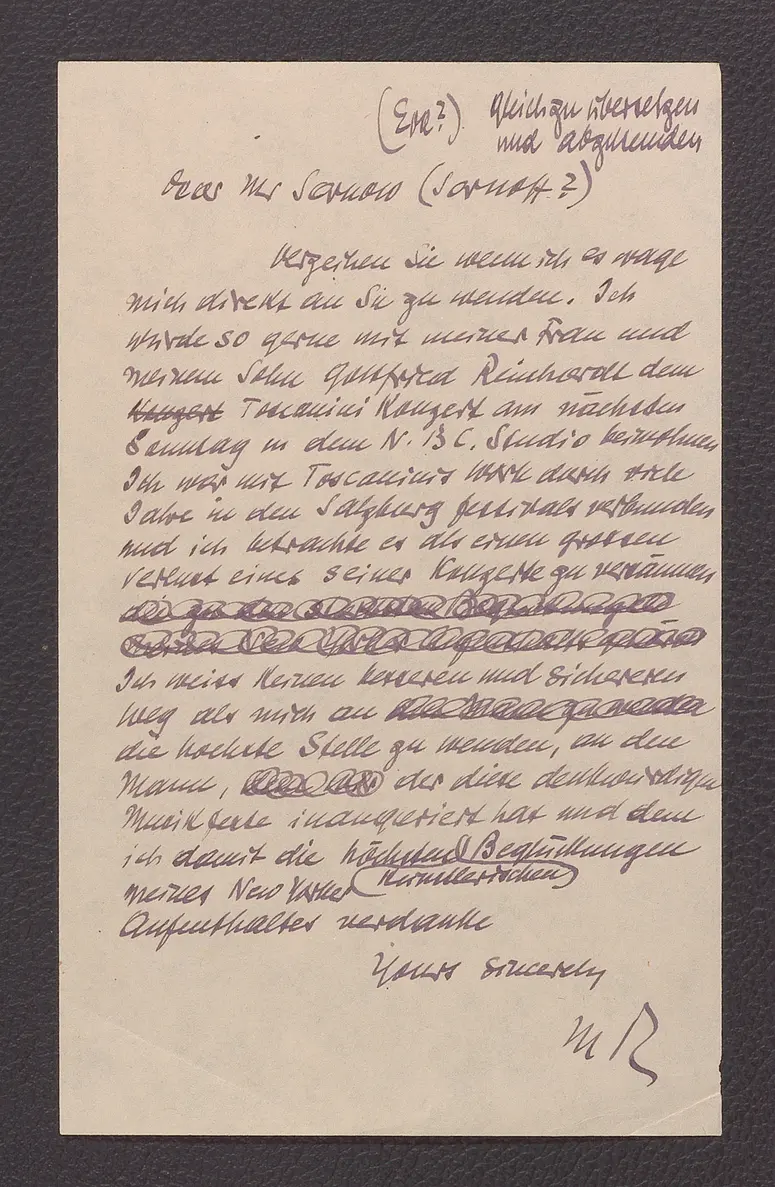 (Eva?) gleich zu übersetzen
und abzusenden
Dear Mr Sarnow (Sarnoff?)
Verzeihen Sie wenn ich es wage
mich direkt an Sie zu wenden. Ich
würde so gerne mit meiner Frau und
meinem Sohn Gottfried Reinhardt dem
Konzert Toscanini Konzert am nächsten
Sonntag in dem N.B.C. Studio beiwohnen
Ich war mit Toscaninis Werk durch viele
Jahre in den Salzburg festivals verbunden
und ich betrachte es als einen grossen
Verlust eines seiner Konzerte zu versäumen
die zu den Beglückungen
meines New Yorker Aufenthaltes
Ich weiss keinen besseren und sichereren
Weg als mich an
die höchste Stelle zu wenden, an den
Mann, der diese denkwürdigen
Musikfeste inauguriert hat und dem
ich damit die höchsten Beglückungen
meines New Yorker künstlerischen
Aufenthaltes verdanke
Yours sincerely
M R